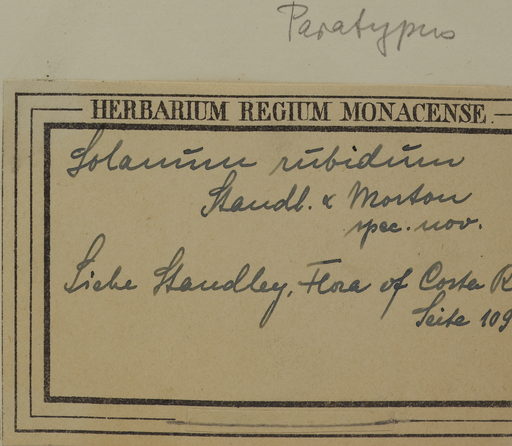 Paratypus
HERBARIUM REGIUM MONACENSE.
Solanum rubidum
Standl. & Morton
spec. nov.
Siehe Standley, Flora of Costa R
Seite 109